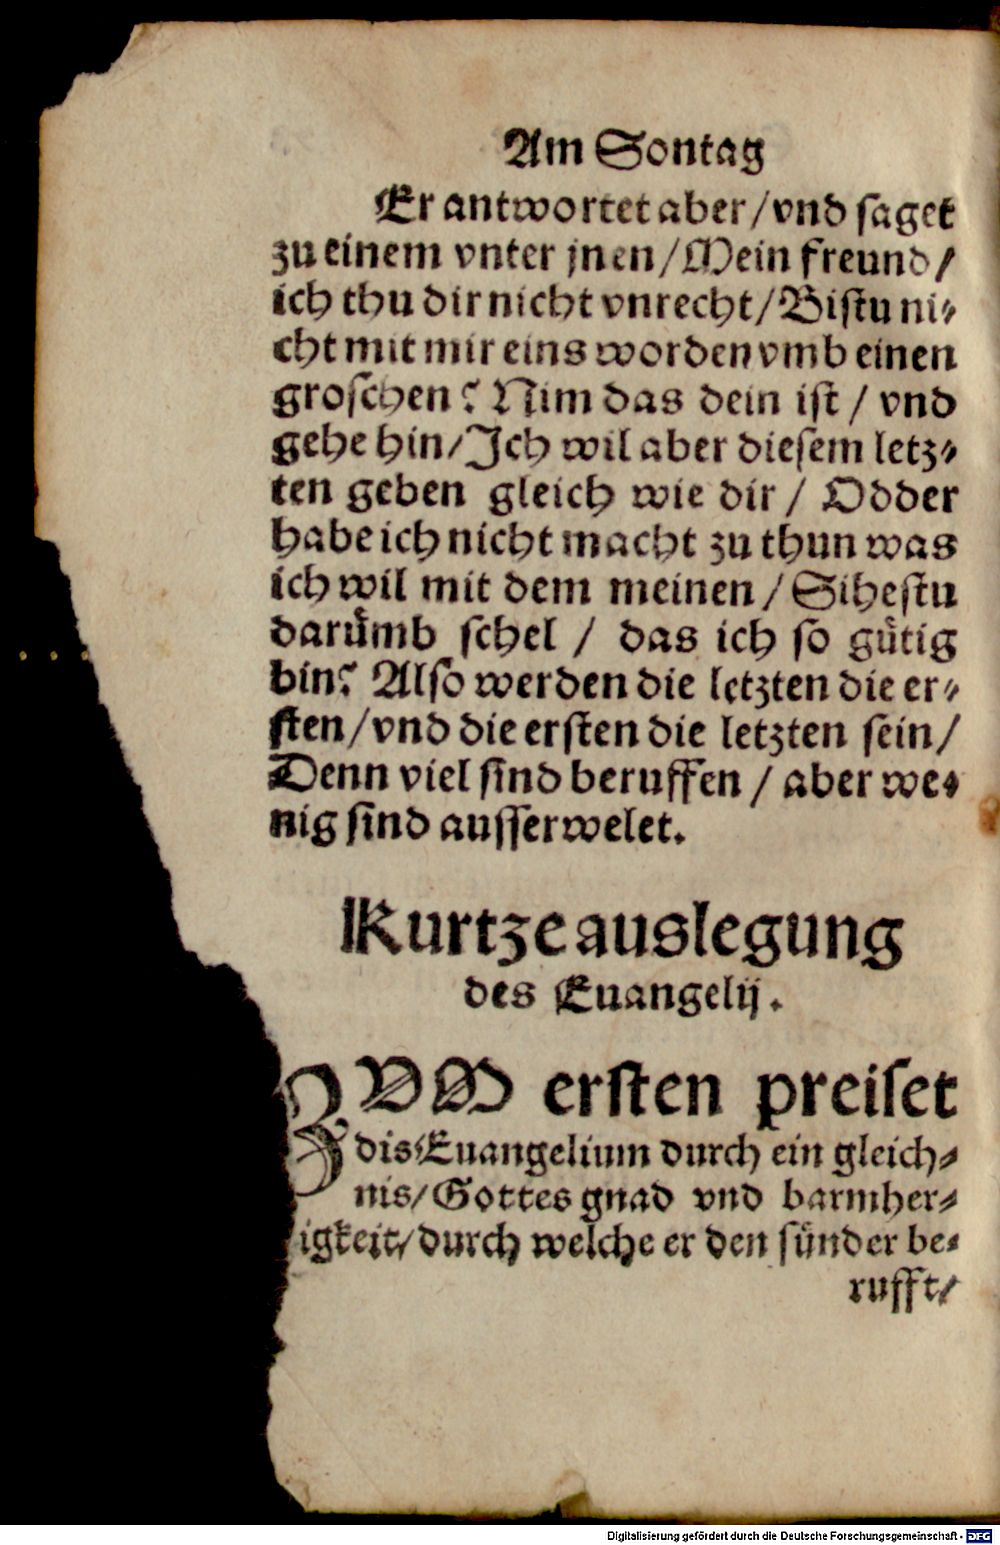 Am Sontag
Er antwortet aber/vnd saget
zu einem vnter jnen/Mein freund/
ich thu dir nicht vnrecht/Bistu ni⸗
cht mit mir eins worden vmb einen
groschen? Nim das dein ist / vnd
gehe hin/Ich wil aber diesem letz⸗
ten geben gleich wie dir / Odder
habe ich nicht macht zu thun was
ich wil mit dem meinen / Sihestu
darůmb schel / das ich so gütig
bin? Also werden die letzten die er⸗
sten/vnd die ersten die letzten sein/
Denn viel sind beruffen / aber we⸗
nig sind ausserwelet.
Kurtze auslegung
des Euangelij.
ZVM ersten preiset
dis Euangelium durch ein gleich⸗
nis/Gottes gnad vnd barmher⸗
igkeit/durch welche er den sünder be⸗
rufft/
Digitalisierung gefördert durch die Deutsche Forschungsgemeinschaft - DFG